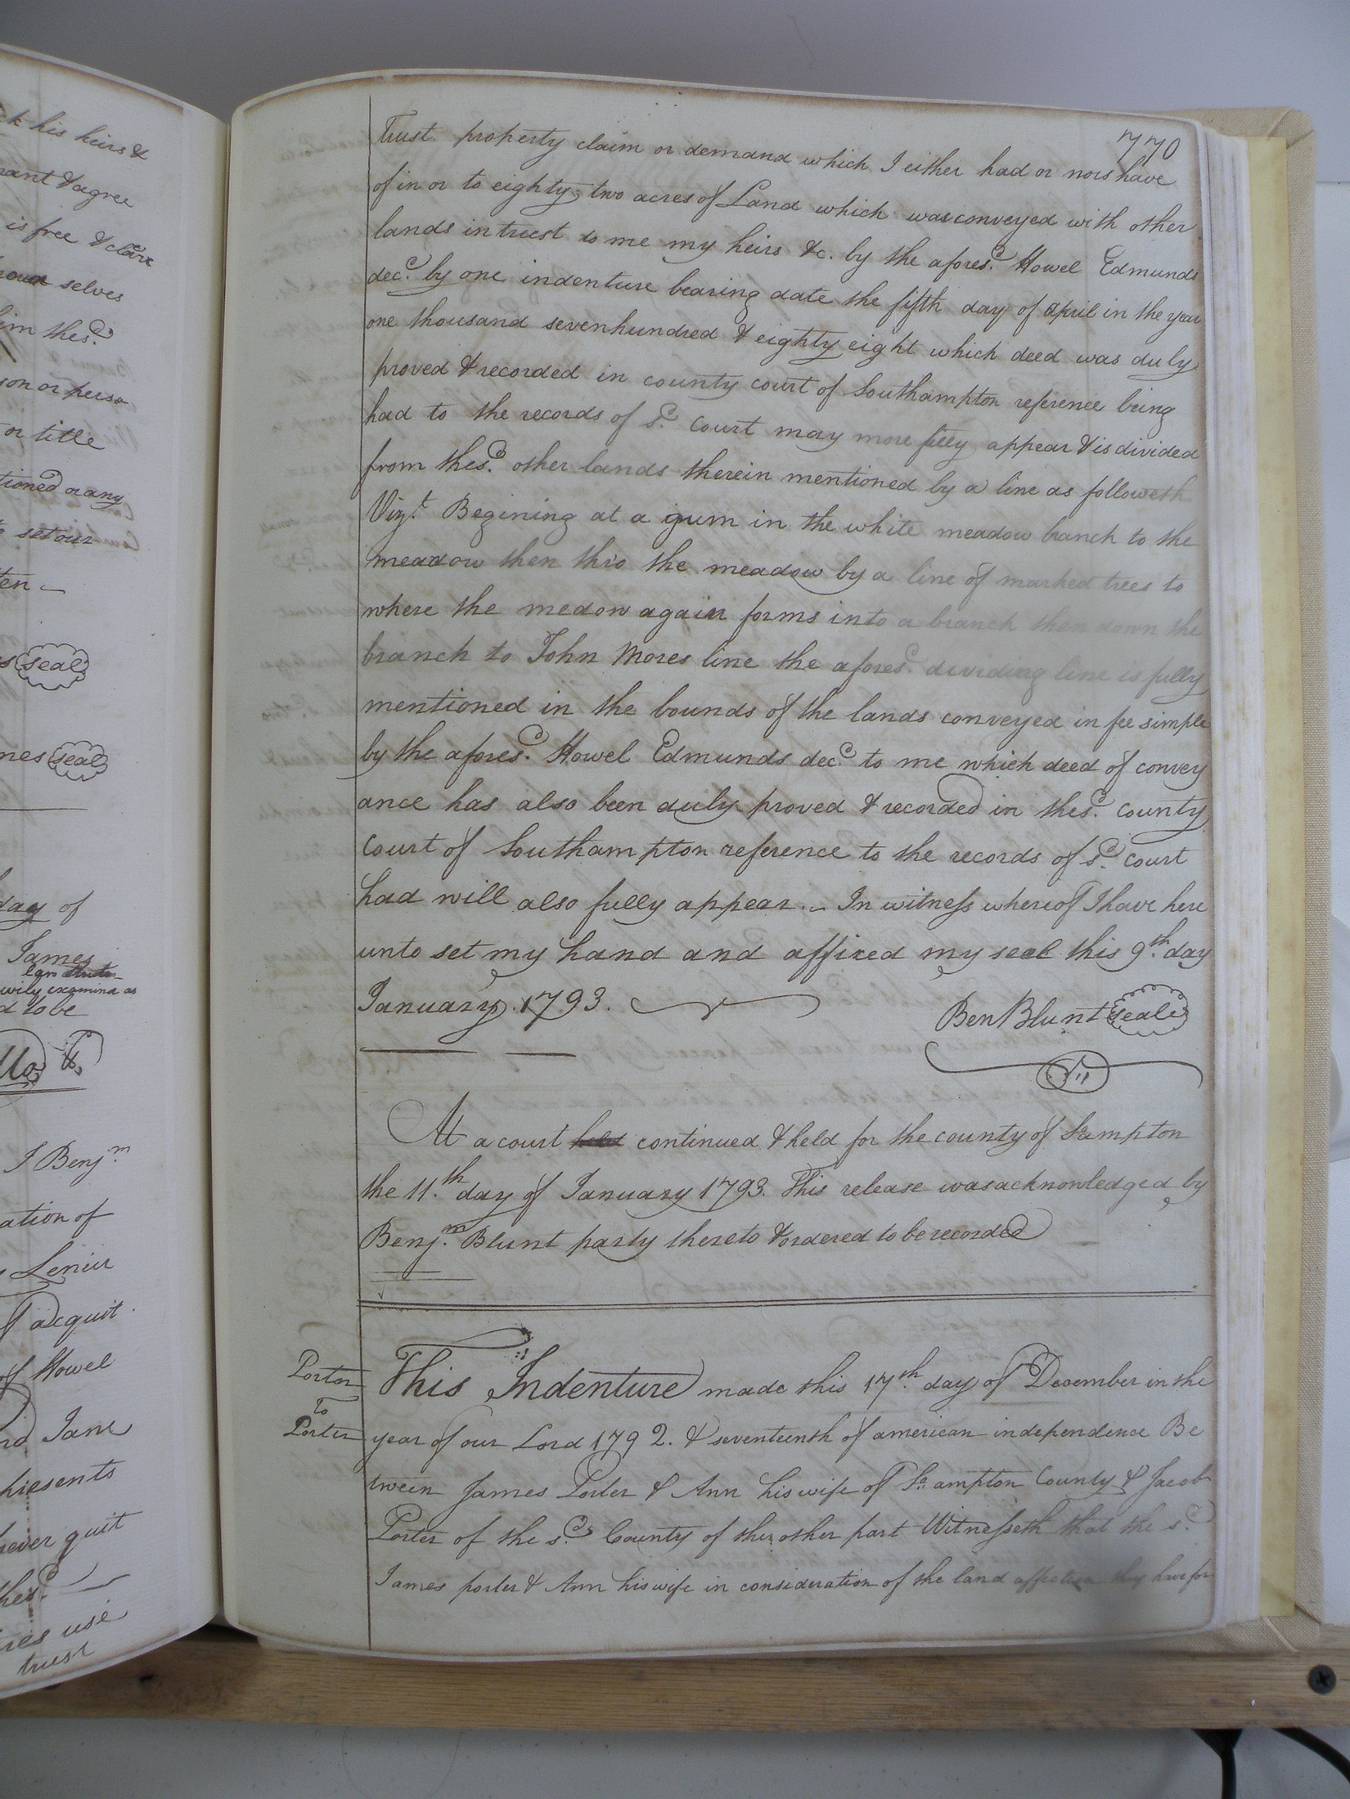 ck his heirs &
nant & agree
is free & clare
our selves
him the sd.
son or perso
or title
tioned or any
set our
ten
s seal
mes seal
day of
James
wily examined as
d to be
I Benjm.
ation of
Lenier
acquit
of Howel
nd Jane
presents
ever quit
the sd.
ires use
trust
770
Trust property claim or demand which I either had or now have
of in or to eighty two acres of Land which was conveyed with other
lands in trust to me my heirs &c. by the aforesd. Howel Edmunds
decd. by one indenture bearing date the fifth day of april in the year
one thousand sevenhundred & eighty eight which deed was duly
proved & recorded in county court of Southampton reference being
had to the records of sd. court may more fully appear & is divided
from the sd. other lands therein mentioned by a line as followeth
Vizt. Begining at a gum in the white meadow branch to the
meadow then thro the meadow by a line of marked trees to
where the medow again forms into a branch then down the
branch to John Mores line the aforesd. dividing line is fully
mentioned in the bounds of the lands conveyed in fee simple
by the aforesd. Howel Edmunds decd. to me which deed of convey
ance has also been duly proved & recorded in the sd. county
Court of Southampton reference to the records of sd. court
had will also fully appear. In witness whereof I have here
unto set my hand and affixed my seal this 9th. day
January. 1793.
Ben Blunt seale
At a court held continued & held for the county of Sampton
the 11.th day of January 1793. This release was acknowledged by
Benjm. Blunt party thereto & ordered to be recorded
Porter
to
Porter
This Indenture made this 17.th day of December in the
year of our Lord 1792. & seventeenth of american independence Be
tween James Porter & Ann his wife of So. ampton County & Jacob
Porter of the sd. County of the other part Witnesseth that the sd.
James porter & Ann his wife in consideration of the land affection they have for